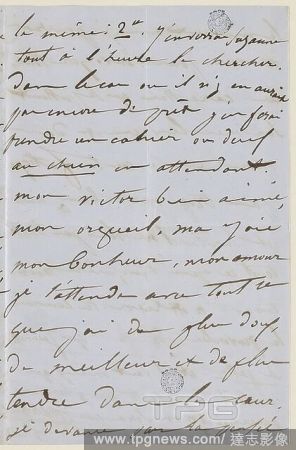 la même 2ᶠ. J'enverrai Suzanne
tout à l'heure le chercher.
Dans le cas où il n'y en aurait
pas encore de prêt j'en ferai
prendre un cahier ou deux
au chien en attendant.
mon victor bien aimé,
mon orgueil, ma joie
mon bonheur, mon amour
je t'attends avec tout ce
que j'ai de plus doux,
de meilleur et de plus
tendre dans le cœur
je devance par la pensée
TPG
www.tpgnews.com / 達志影像